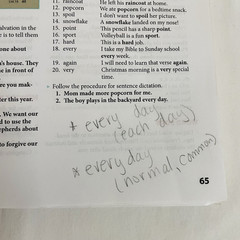 11. raincoat He left his raincoat at home.
12. popcorn We ate popcorn for a bedtime snack.
13. spoil I don't want to spoil her picture.
14. snowflake A snowflake landed on my nose!
15. point This pencil has a sharp point.
16. sport Volleyball is a fun sport.
17. hard This is a hard job.
18. every I take my Bible to Sunday school
every week.
19. again I will need to learn that verse again.
20. very Christmas morning is a very special
time.
Follow the procedure for sentence dictation.
1. Mom made more popcorn for me.
2. The boy plays in the backyard every day.
* every day
(each day)
* everyday
(normal, common)
65
salvation in the
is to tell them
one about
's house. They
e in front of
re you mak-
fter this year.
. We want our
d to use the
epherds about
to forgive our